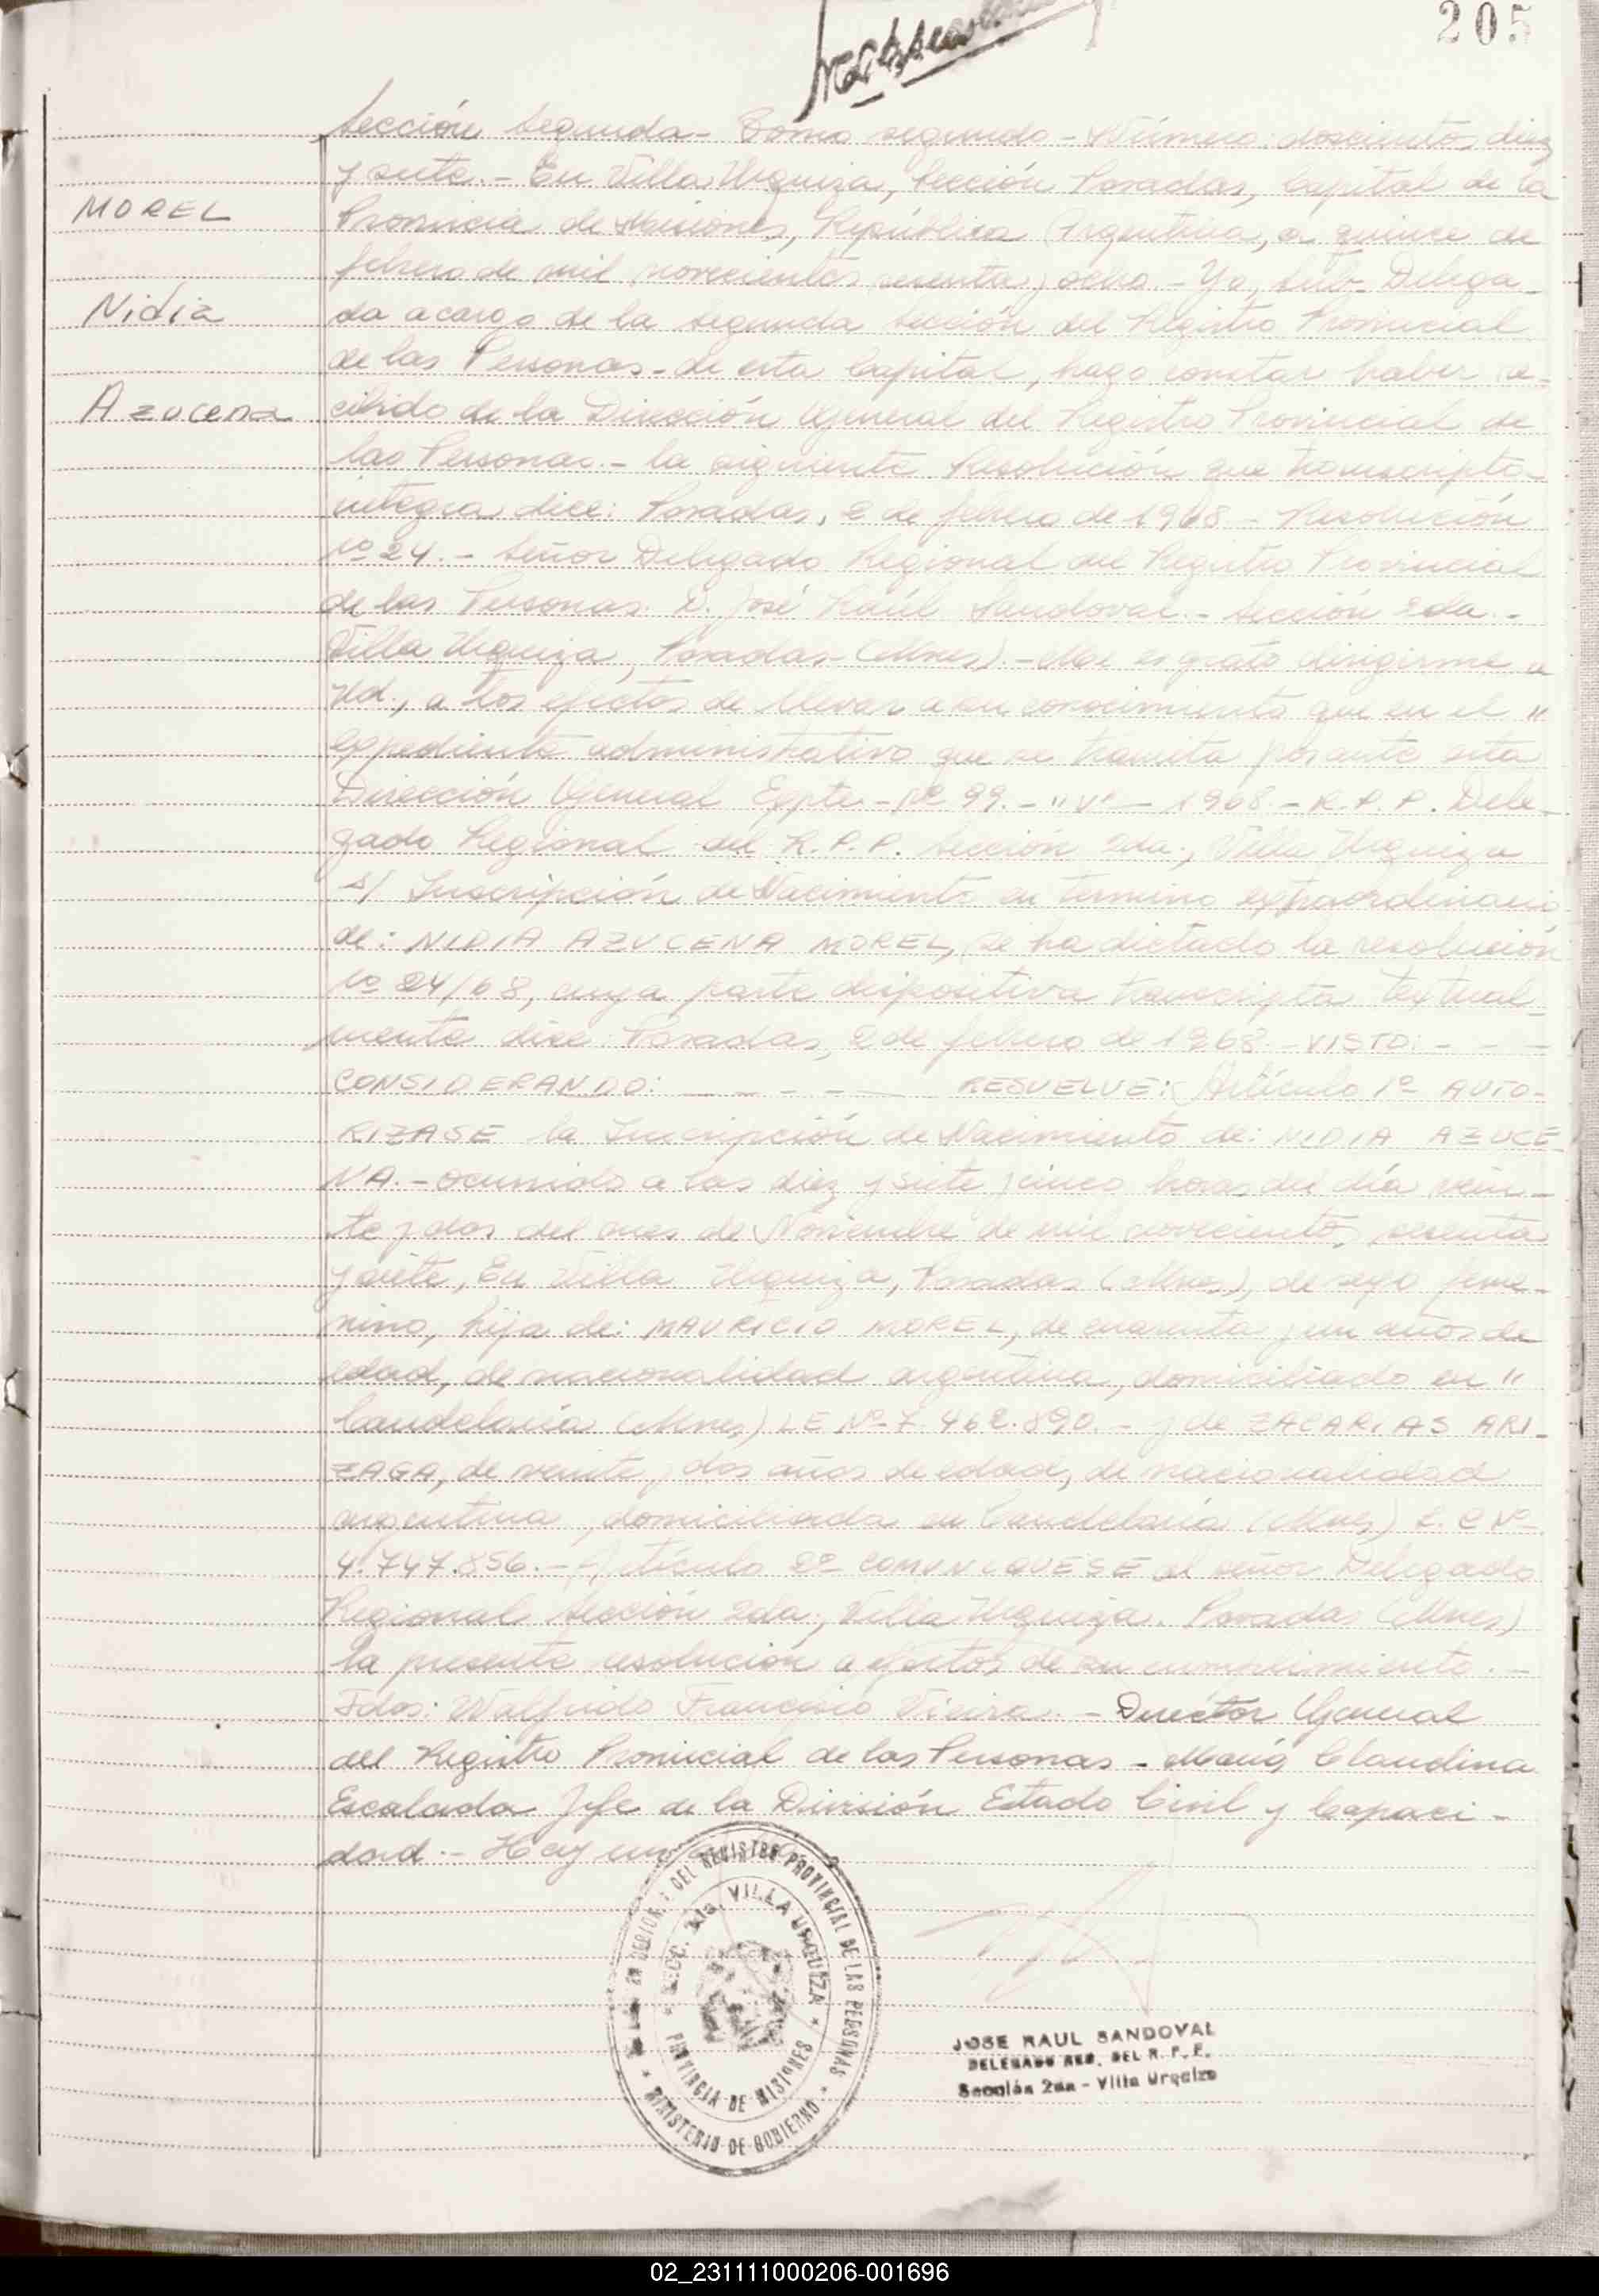 205
MOREL
Nidia
Azucena
Sección Segunda - Tomo segundo - Número: doscientos diez
y siete. - En Villa Urquiza, Sección Posadas, Capital de la
Provincia de Misiones, República Argentina, a quince de
febrero de mil novecientos sesenta y ocho - Yo, Sub-Delega-
do a cargo de la segunda sección del Registro Provincial
de las Personas - de esta Capital, hago constar haber re-
cibido de la Dirección General del Registro Provincial de
las Personas. - la siguiente Resolución que transcripta
integra dice: Posadas, 2 de febrero de 1968 - Resolución
Nº 24. - Señor Delegado Regional del Registro Provincial
de las Personas D. José Raúl Sandoval - Sección 2da. -
Villa Urquiza, Posadas (Mnes). - Me es grato dirigirme a
Ud., a los efectos de llevar a su conocimiento que en el "
expediente administrativo que se tramita por ante esta
Dirección General Expte - Nº 99. - "V" - 1968. - R.P.P. Dele-
gado Regional del R.P.P. Sección 2da., Villa Urquiza
s/ Inscripción de Nacimiento en término extraordinario
de: NIDIA AZUCENA MOREL, se ha dictado la resolución
Nº 24/68, cuya parte dispositiva transcripta textual-
mente dice: Posadas, 2 de febrero de 1968 - VISTO: - - -
CONSIDERANDO: - - - - RESUELVE: Artículo 1º - AUTO-
RIZASE la Inscripción de Nacimiento de: NIDIA AZUCE
NA. - ocurrido a las diez y siete y cinco horas del día vein-
te y dos del mes de Noviembre de mil novecientos sesenta
y siete, En Villa Urquiza, Posadas (Mnes), de sexo feme-
nino, hija de: MAURICIO MOREL, de cuarenta y un años de
edad, de nacionalidad argentina, domiciliado en "
Candelaria (Mnes) LE Nº 7.462.890. - y de ZACARIAS ARI-
ZAGA, de veinte y dos años de edad, de nacionalidad
argentina, domiciliada en Candelaria (Mnes) L.C Nº
4.747.856. - Artículo 2º COMUNIQUESE al señor Delegado
Regional Sección 2da., Villa Urquiza. Posadas (Mnes)
la presente resolución a efectos de su cumplimiento. -
Fdos: Walfrido Francisco Vieira. - Director General
del Registro Provincial de las Personas - María Claudina
Escalada Jefe de la División Estado Civil y Capaci-
dad. - Hay un
DEL REGISTRO PROVINCIAL DE LAS PERSONAS
SECC. 2da. VILLA URQUIZA
PROVINCIA DE MISIONES
MINISTERIO DE GOBIERNO
JOSE RAUL SANDOVAL
DELEGADO REG. DEL R. P. P.
Sección 2da - Villa Urquiza
02_231111000206-001696